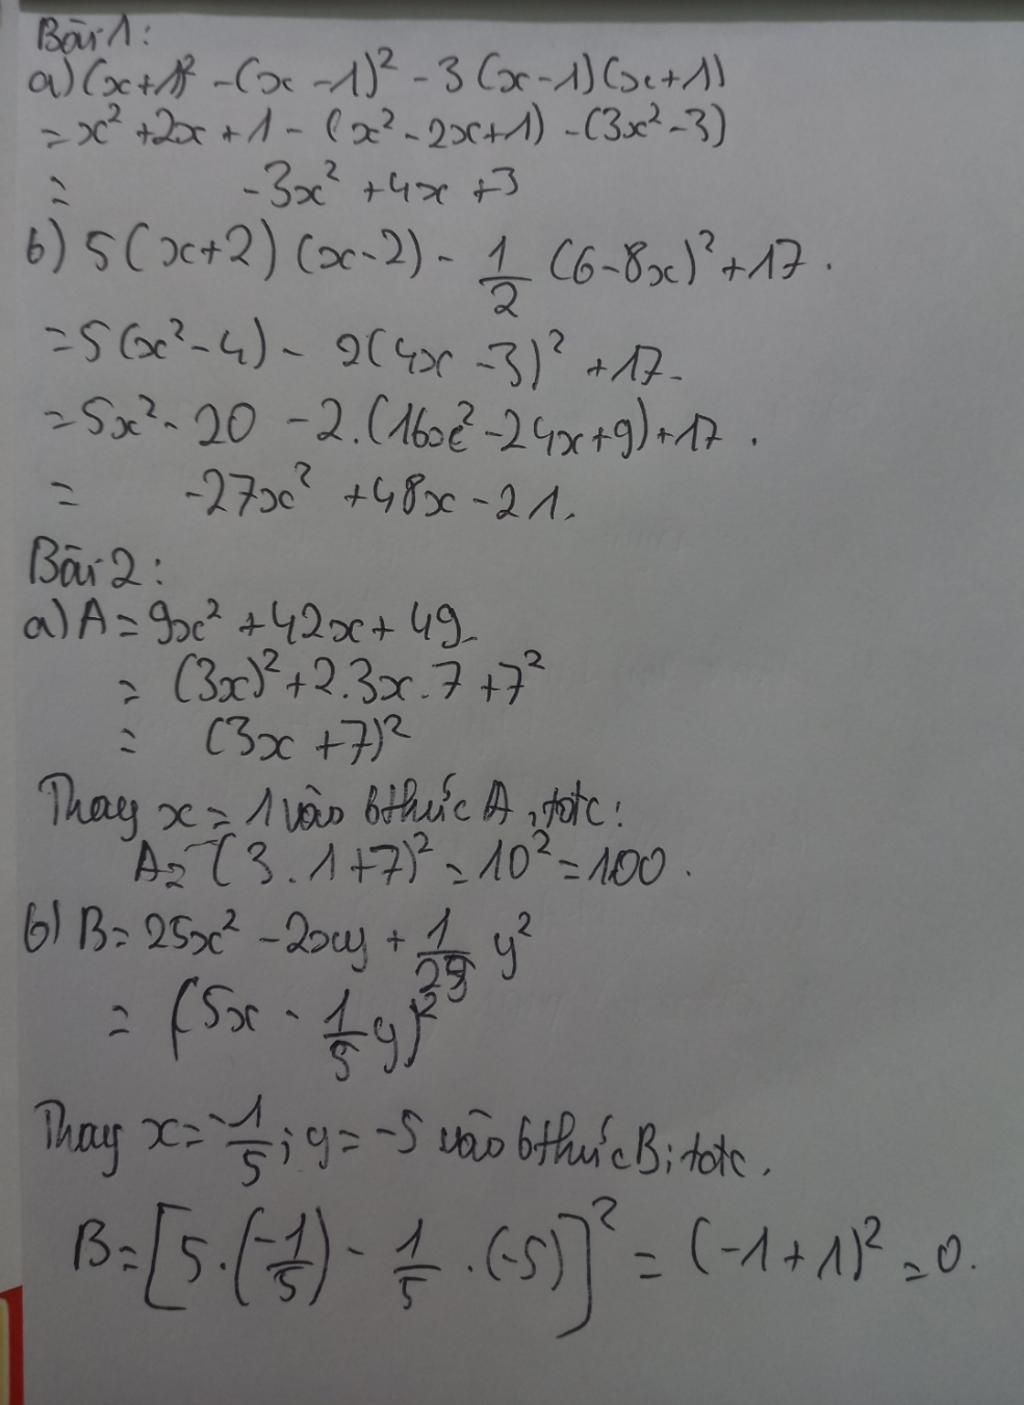 Bài 1:
a) (x+1)² - (x-1)² - 3(x-1)(x+1)
= x² + 2x + 1 - (x² - 2x+1) - (3x² - 3)
= -3x² + 4x + 3
b) 5(x+2)(x-2) - 1/2 (6-8x)² + 17.
= 5(x² - 4) - 2(4x - 3)² + 17.
= 5x² - 20 - 2.(16x² - 24x + 9) + 17.
= -27x² + 48x - 21.
Bài 2:
a) A = 9x² + 42x + 49.
= (3x)² + 2.3x.7 + 7²
= (3x + 7)²
Thay x = 1 vào bthức A, tatc:
A = (3.1+7)² = 10² = 100.
b) B = 25x² - 2xy + 1/25 y²
= (5x - 1/5 y)²
Thay x = -1/5; y = -5 vào bthức B, tatc.
B = [5.(-1/5) - 1/5 .(-5)]² = (-1+1)² = 0.